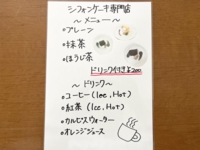 シフォンケーキ専門店
～メニュー～
プレーン
抹茶
ほうじ茶
ドリンク付き¥200
～ドリンク～
コーヒー(Ice, Hot)
紅茶(Ice, Hot)
カルピスウォーター
オレンジジュース